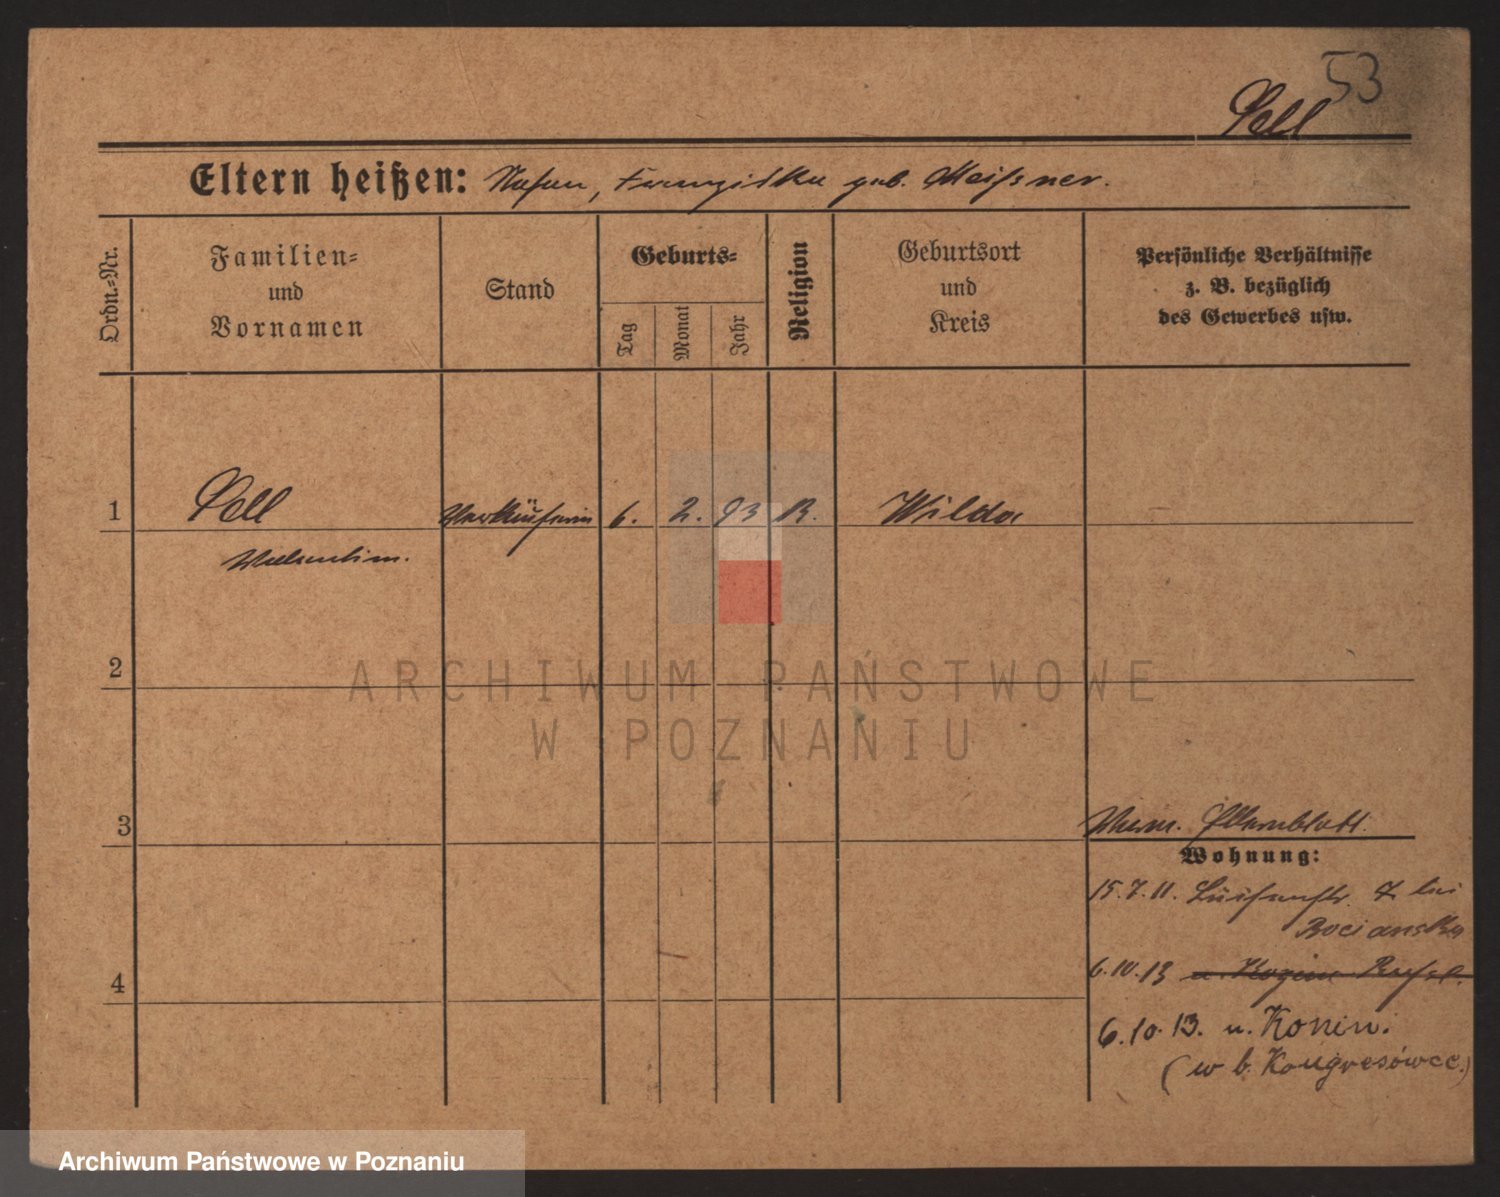 53
Sell
Eltern heißen: Stefan, Franziska geb. Meißner.
Ordn.-Nr.
Familien-
und
Vornamen
Stand
Geburts-
Tag
Monat
Jahr
Religion
Geburtsort
und
Kreis
Persönliche Verhältnisse
z. B. bezüglich
des Gewerbes usw.
1
Sell
Verkäuferin
6.
2.
93
Wilda
2
ARCHIWUM PAŃSTWOWE
W POZNANIU
3
Elternblatt.
Wohnung:
15.7.11. Luisenstr. 7 bei
Bocianska
4
6.10.13
6.10.13. n. Konin.
(w b. Kongresówce.)
Archiwum Państwowe w Poznaniu